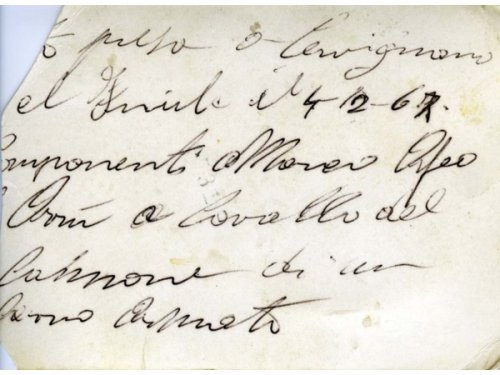 o presa a Cervignano
el Friuli il 4-12-67.
Componenti Marco Afeo
a Cavallo del
Cannone di un
Carro Armato